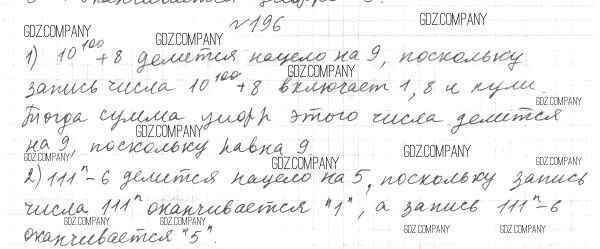 №196
GDZ.COMPANY
GDZ.COMPANY
GDZ.COMPANY
1) 10¹⁰⁰+8 делится нацело на 9, поскольку
GDZ.COMPANY
запись числа 10¹⁰⁰+8 включает 1, 8 и нули.
GDZ.COMPANY
Тогда сумма цифр этого числа делится
GDZ.COMPANY
на 9, поскольку равна 9
GDZ.COMPANY
GDZ.COMPANY
GDZ.COMPANY
GDZ.COMPANY
2) 111ⁿ-6 делится нацело на 5, поскольку запись
числа 111ⁿ оканчивается "1", а запись 111ⁿ-6
GDZ.COMPANY
GDZ.COMPANY
GDZ.COMPANY
GDZ.COMPANY
оканчивается "5".